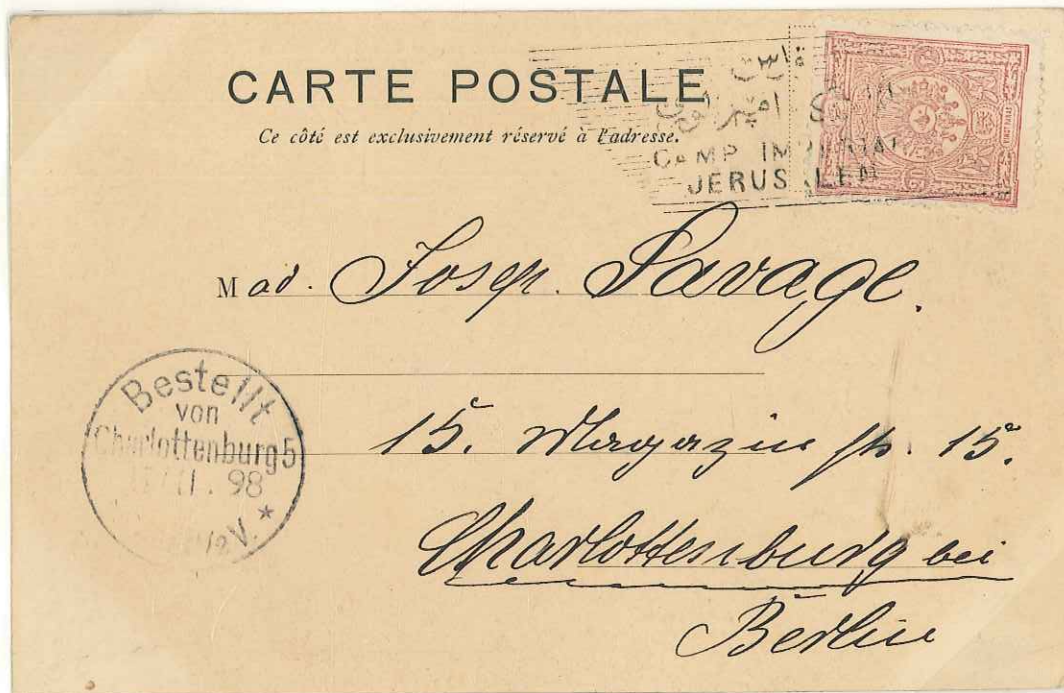 CARTE POSTALE
Ce côté est exclusivement réservé à l'adresse.
CAMP IMPERIAL
JERUSALEM
Mad. Josep. Savage.
15. Magazin str. 15.
Charlottenburg bei
Berlin
Bestellt
von
Charlottenburg 5
98
1/2 V. *